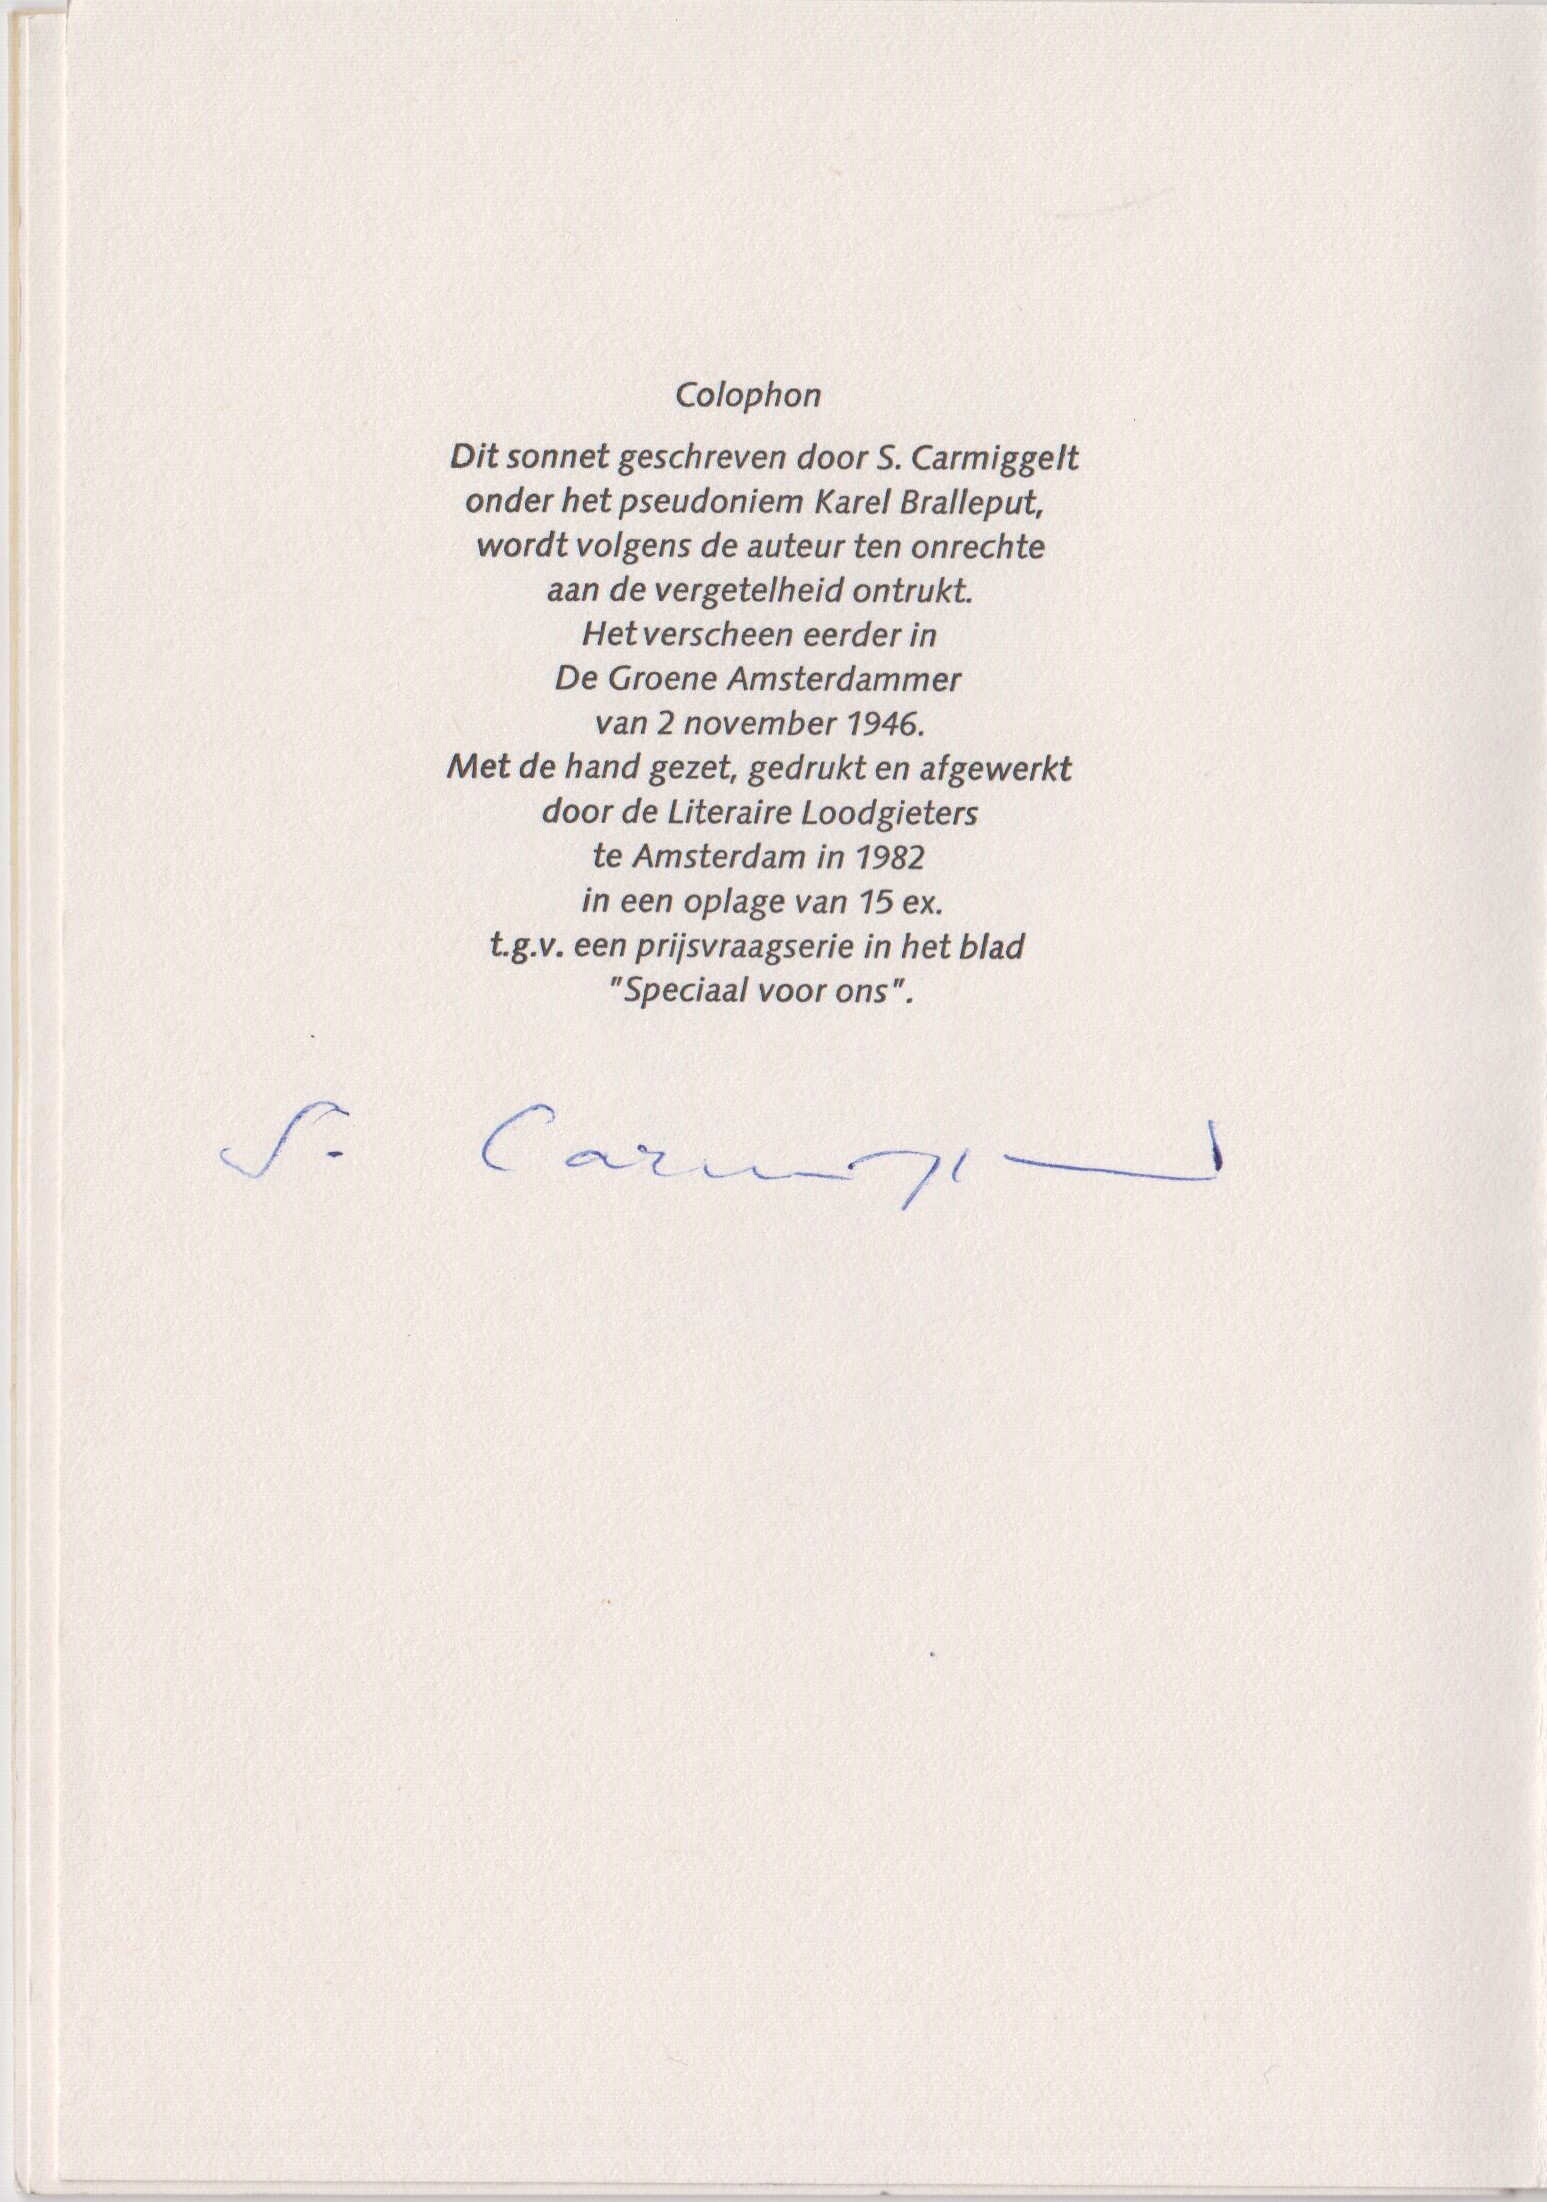 Colophon
Dit sonnet geschreven door S. Carmiggelt
onder het pseudoniem Karel Bralleput,
wordt volgens de auteur ten onrechte
aan de vergetelheid ontrukt.
Het verscheen eerder in
De Groene Amsterdammer
van 2 november 1946.
Met de hand gezet, gedrukt en afgewerkt
door de Literaire Loodgieters
te Amsterdam in 1982
in een oplage van 15 ex.
t.g.v. een prijsvraagserie in het blad
"Speciaal voor ons".
S. Carmiggelt